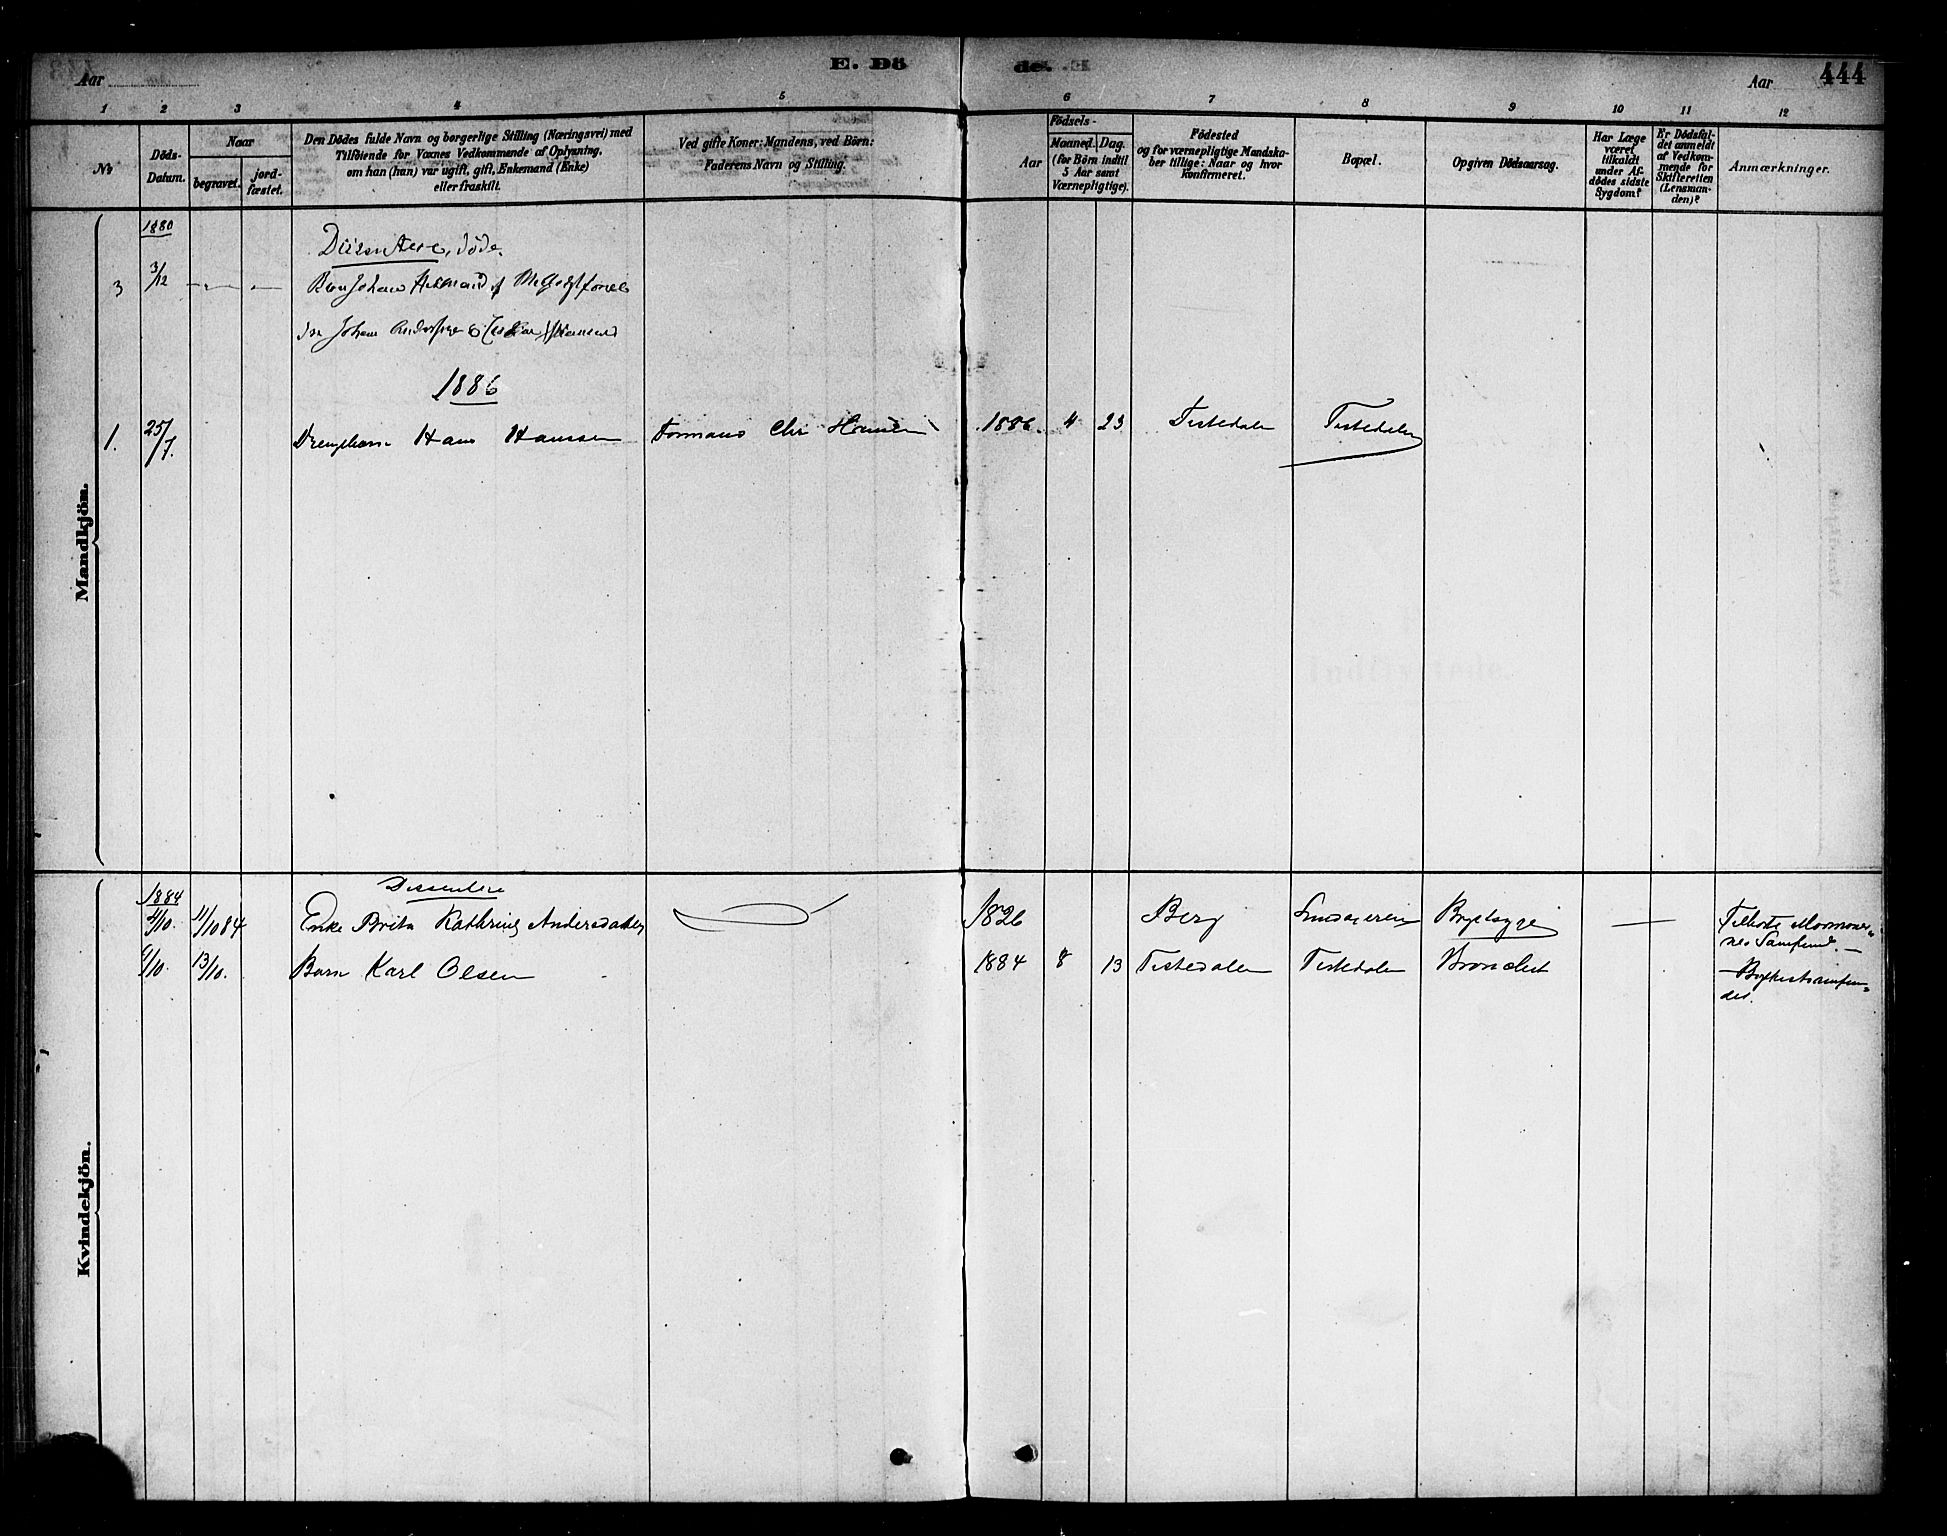 E. Dö
de.
Aar
Aar
444
1 2 3 4 5 6 7 8 9 10 11 12
No
Döds-
Datum.
Naar
begravet.
jord-
fæstet.
Den Dödes fulde Navn og borgerlige Stilling (Næringsvei) med
Tilföiende for Voxnes Vedkommende af Oplysning,
om han (hun) var ugift, gift, Enkemand (Enke)
eller fraskilt.
Ved gifte Koner: Mandens, ved Börn:
Faderens Navn og Stilling.
Födsels-
Aar
Maaned. Dag.
(for Börn indtil
5 Aar samt
Værnepligtige).
Födested
og for værnepligtige Mandska-
ber tillige: Naar og hvor
Konfirmeret.
Bopæl.
Opgiven Dödsaarsag.
Har Læge
været
tilkaldt
under Af-
dödes sidste
Sygdom?
Er Dödsfal-
det anmeldt
af Vedkom-
mende for
Skifteretten
(Lensman-
den)?
Anmærkninger.
Mandkjön.
1880
döde.
3 3/12
Johan
Johan
1886
1. 25/7. Hans Hanssen Formand Chr Hansen 1886. 4 23 Tistedalen Tistedalen
Kvindekjön.
Dissentere
1884
4/10. 11/10 84 Enke Brita Kathrine Andersdatter 1826 Berg Brystsyge — Tilhörte Mormoner-
nes Samfund. —
6/10. 13/10. Barn Karl Olsen 1884 8 13 Tistedalen Tistedalen Bronchit